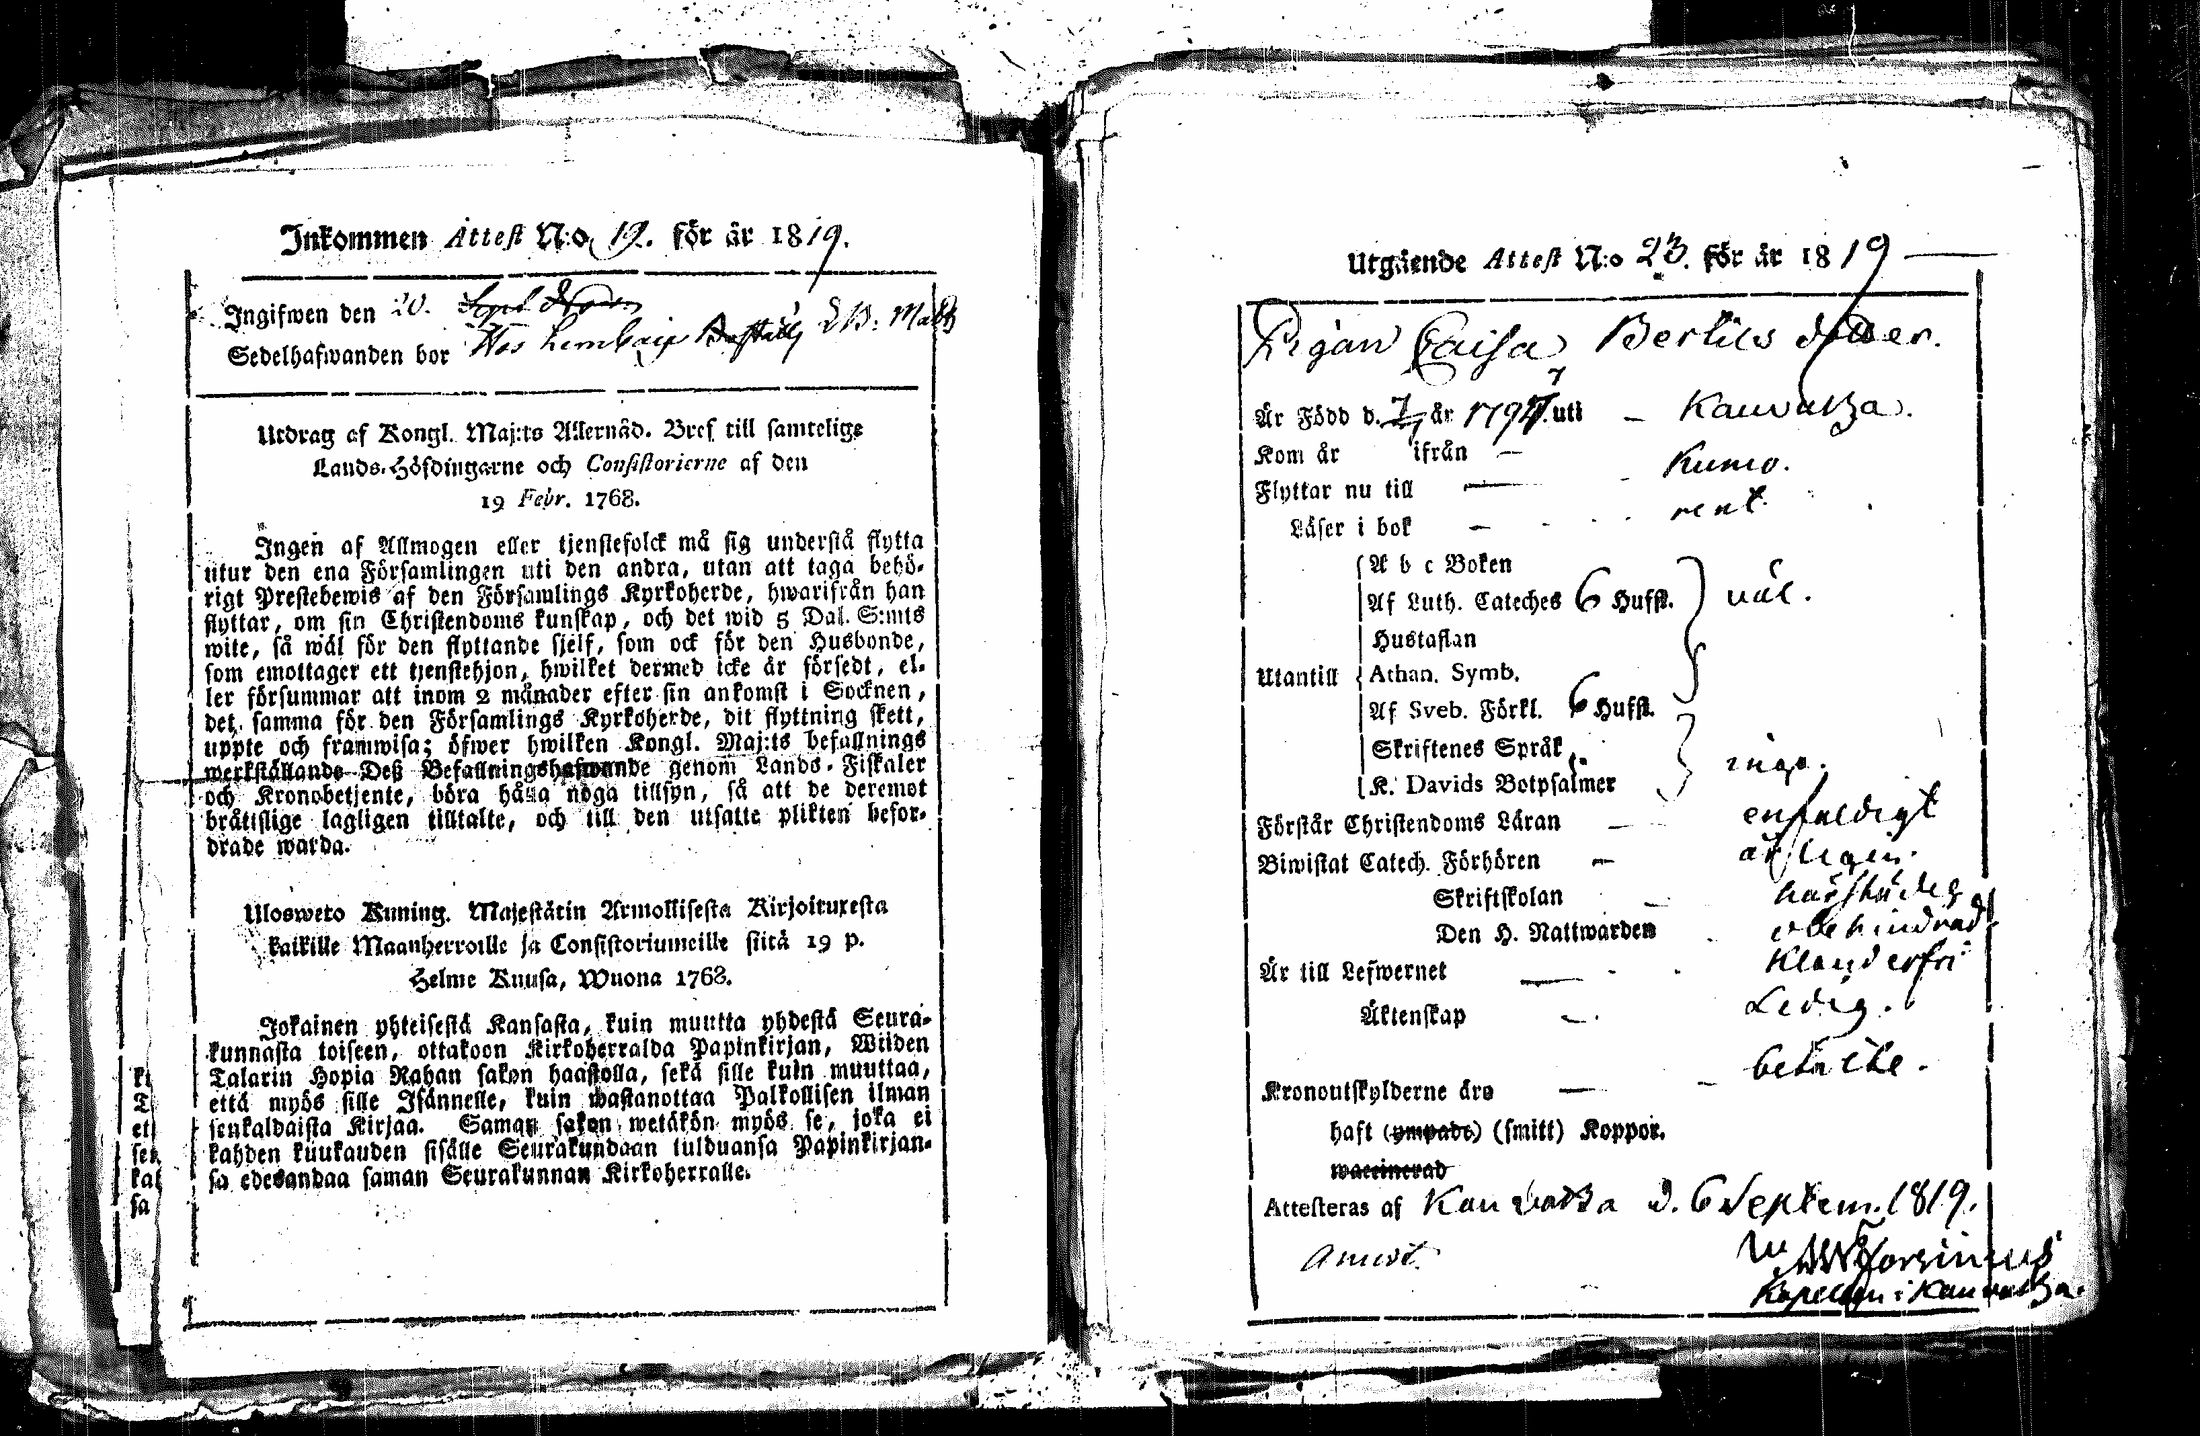 Inkommen Attest N:o 19. för år 1819.
Ingifwen den 20.
Sedelhafwanden bor Hos
Utdrag af Kongl. Maj:ts Allernåd. Bref till samtelige
Lands-Höfdingarne och Consistorierne af den
19 Febr. 1768.
Ingen af Allmogen eller tjenstefolck må sig understå flytta
utur den ena Församlingen uti den andra, utan att taga behö-
rigt Prestebewis af den Församlings Kyrkoherde, hwarifrån han
flyttar, om sin Christendoms kunskap, och det wid 5 Dal. S:mts
wite, så wäl för den flyttande sjelf, som ock för den Husbonde,
som emottager ett tjenstehjon, hwilket dermed icke är försedt, el-
ler försummar att inom 2 månader efter sin ankomst i Socknen,
det samma för den Församlings Kyrkoherde, dit flyttning skett,
uppte och framwisa; öfwer hwilken Kongl. Maj:ts befallnings
werkställande Deß Befallningshafwande genom Lands-Fiskaler
och Kronobetjente, böra hålla noga tillsyn, så att de deremot
bråttslige lagligen tilltalte, och till den utsatte plikten befor-
drade warda.
Uloswето Kuning. Majestätin Armollisesta Kirjoituxesta
kaikille Maanherroille ja Consistoriumeille siitä 19 p.
Helme Kuusa, Wuona 1768.
Jokainen yhteisestä Kansasta, kuin muutta yhdestä Seura-
kunnasta toiseen, ottakoon Kirkoherralda Papinkirjan, Wiiden
Talarin Hopia Rahan sakon haastolla, sekä sille kuin muuttaa,
että myös sille Isännelle, kuin wastanottaa Palkollisen ilman
senkaldaista Kirjaa. Saman sakon wetäkön myös se, joka ei
kahden kuukauden sisälle Seurakundaan tulduansa Papinkirjan-
sa edesandaa saman Seurakunnan Kirkoherralle.
Utgående Attest N:o 23. för år 1819
Pigan Caisa Bertils dotter.
Är Född d. 7/7 år 1797. uti – Kauvatza.
Kom år ifrån –
Flyttar nu till – Kumo.
Läser i bok – rent.
Utantill
A b c Boken
Af Luth. Cateches 6 Hufst. väl.
Hustaflan
Athan. Symb.
Af Sveb. Förkl. 6 Hufst.
Skriftenes Språk
K. Davids Botpsalmer inga.
Förstår Christendoms Läran – enfaldigt
Biwistat Catech. Förhören – årligen.
Skriftskolan –
Den H. Nattwarden obehindrad
Är till Lefwernet – klanderfri
Äktenskap – Ledig.
Kronoutskylderne äro – betalte.
haft (ympade) (smitt) Koppor.
waccinerad
Attesteras af Kauvatza d. 6 Septem. 1819.
Kapellan i Kauvatza.